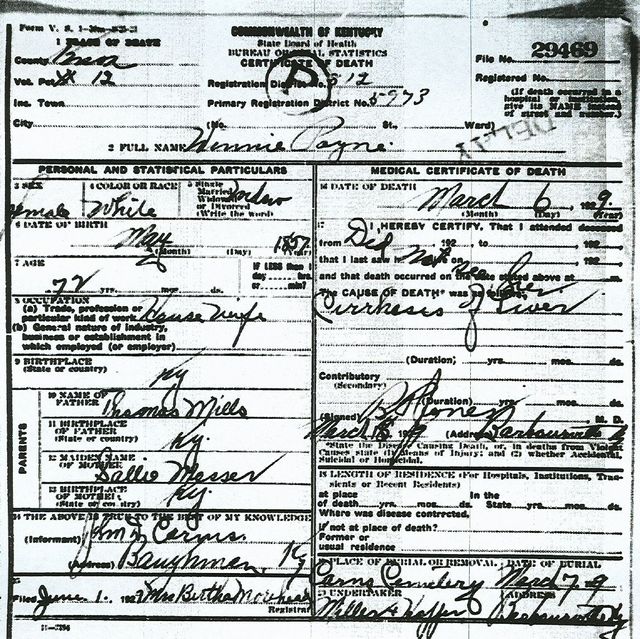 Form V. S. 1
COMMONWEALTH OF KENTUCKY
State Board of Health
BUREAU OF VITAL STATISTICS
CERTIFICATE OF DEATH
1 PLACE OF DEATH
County Knox
Vot. Pct # 12
Inc. Town
City
Registration District No. 812
Primary Registration District No. 5973
(No. St., Ward)
File No. 29469
Registered No.
(If death occurred in a hospital or institution, give its NAME instead of street and number.)
DELAY
2 FULL NAME Winnie Payne.
PERSONAL AND STATISTICAL PARTICULARS
3 SEX Female
4 COLOR OR RACE White
5 Single Married Widowed or Divorced (Write the word) Widow
6 DATE OF BIRTH
May 1857
(Month) (Day) (Year)
7 AGE
72 yrs. mos. ds.
IF LESS than 1 day hrs. or min?
8 OCCUPATION
(a) Trade, profession or particular kind of work Housewife
(b) General nature of industry, business or establishment in which employed (or employer)
9 BIRTHPLACE
(State or country) Ky
PARENTS
10 NAME OF FATHER Thomas Mills
11 BIRTHPLACE OF FATHER
(State or country) Ky.
12 MAIDEN NAME OF MOTHER Sallie Messer
13 BIRTHPLACE OF MOTHER
(State or country) Ky.
14 THE ABOVE IS TRUE TO THE BEST OF MY KNOWLEDGE
(Informant) Carns.
(Address) Baughman, Ky
15 Filed June 1. 192 Mrs Bertha Morehead
Registrar
MEDICAL CERTIFICATE OF DEATH
16 DATE OF DEATH
March 6, 1929.
(Month) (Day) (Year)
17 I HEREBY CERTIFY, That I attended deceased
from Did 192 , to 192
that I last saw Not on 192
and that death occurred on the date stated above at m.
THE CAUSE OF DEATH* was as follows:
Cirrhosis of Liver
(Duration) yrs. mos. ds.
Contributory
(Secondary)
(Duration) yrs. mos. ds.
(Signed) Jones M. D.
March (Address) Barbourville Ky
*State the Disease Causing Death, or, in deaths from Violent Causes state (1) Means of Injury; and (2) whether Accidental, Suicidal or Homicidal.
18 LENGTH OF RESIDENCE (For Hospitals, Institutions, Transients or Recent Residents)
At place of death yrs. mos. ds. In the State yrs. mos. ds.
Where was disease contracted,
If not at place of death?
Former or usual residence
19 PLACE OF BURIAL OR REMOVAL DATE OF BURIAL
Carns Cemetery March 7 - 9
20 UNDERTAKER ADDRESS
Miller & Barbourville Ky